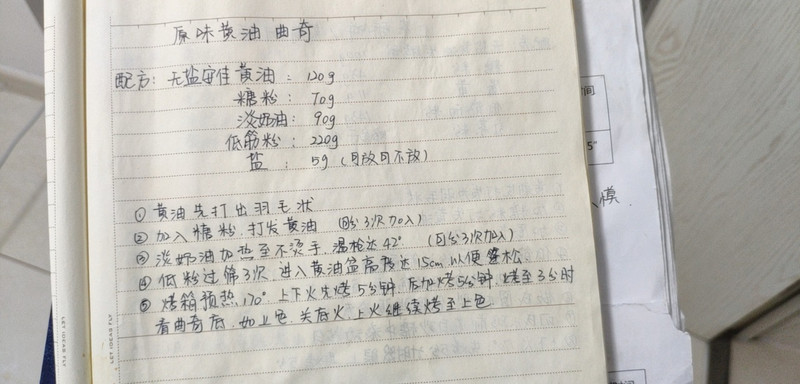 原味黄油曲奇
配方：无盐安佳黄油：120g
糖粉：70g
淡奶油：90g
低筋粉：220g
盐：5g（可放可不放）
① 黄油先打出羽毛状
② 加入糖粉，打发黄油（可分3次加入）
③ 淡奶油加热至不烫手，温枪达42°（可分3次加入）
④ 低粉过筛3次，进入黄油盆高度达15cm，以便蓬松
⑤ 烤箱预热170°，上下火先烤5分钟，后加烤5分钟，烤至3分时
看曲奇底，如上色，关底火，上火继续烤至上色
LET IDEAS FLY
LET IDEAS FLY
间
5"
模.